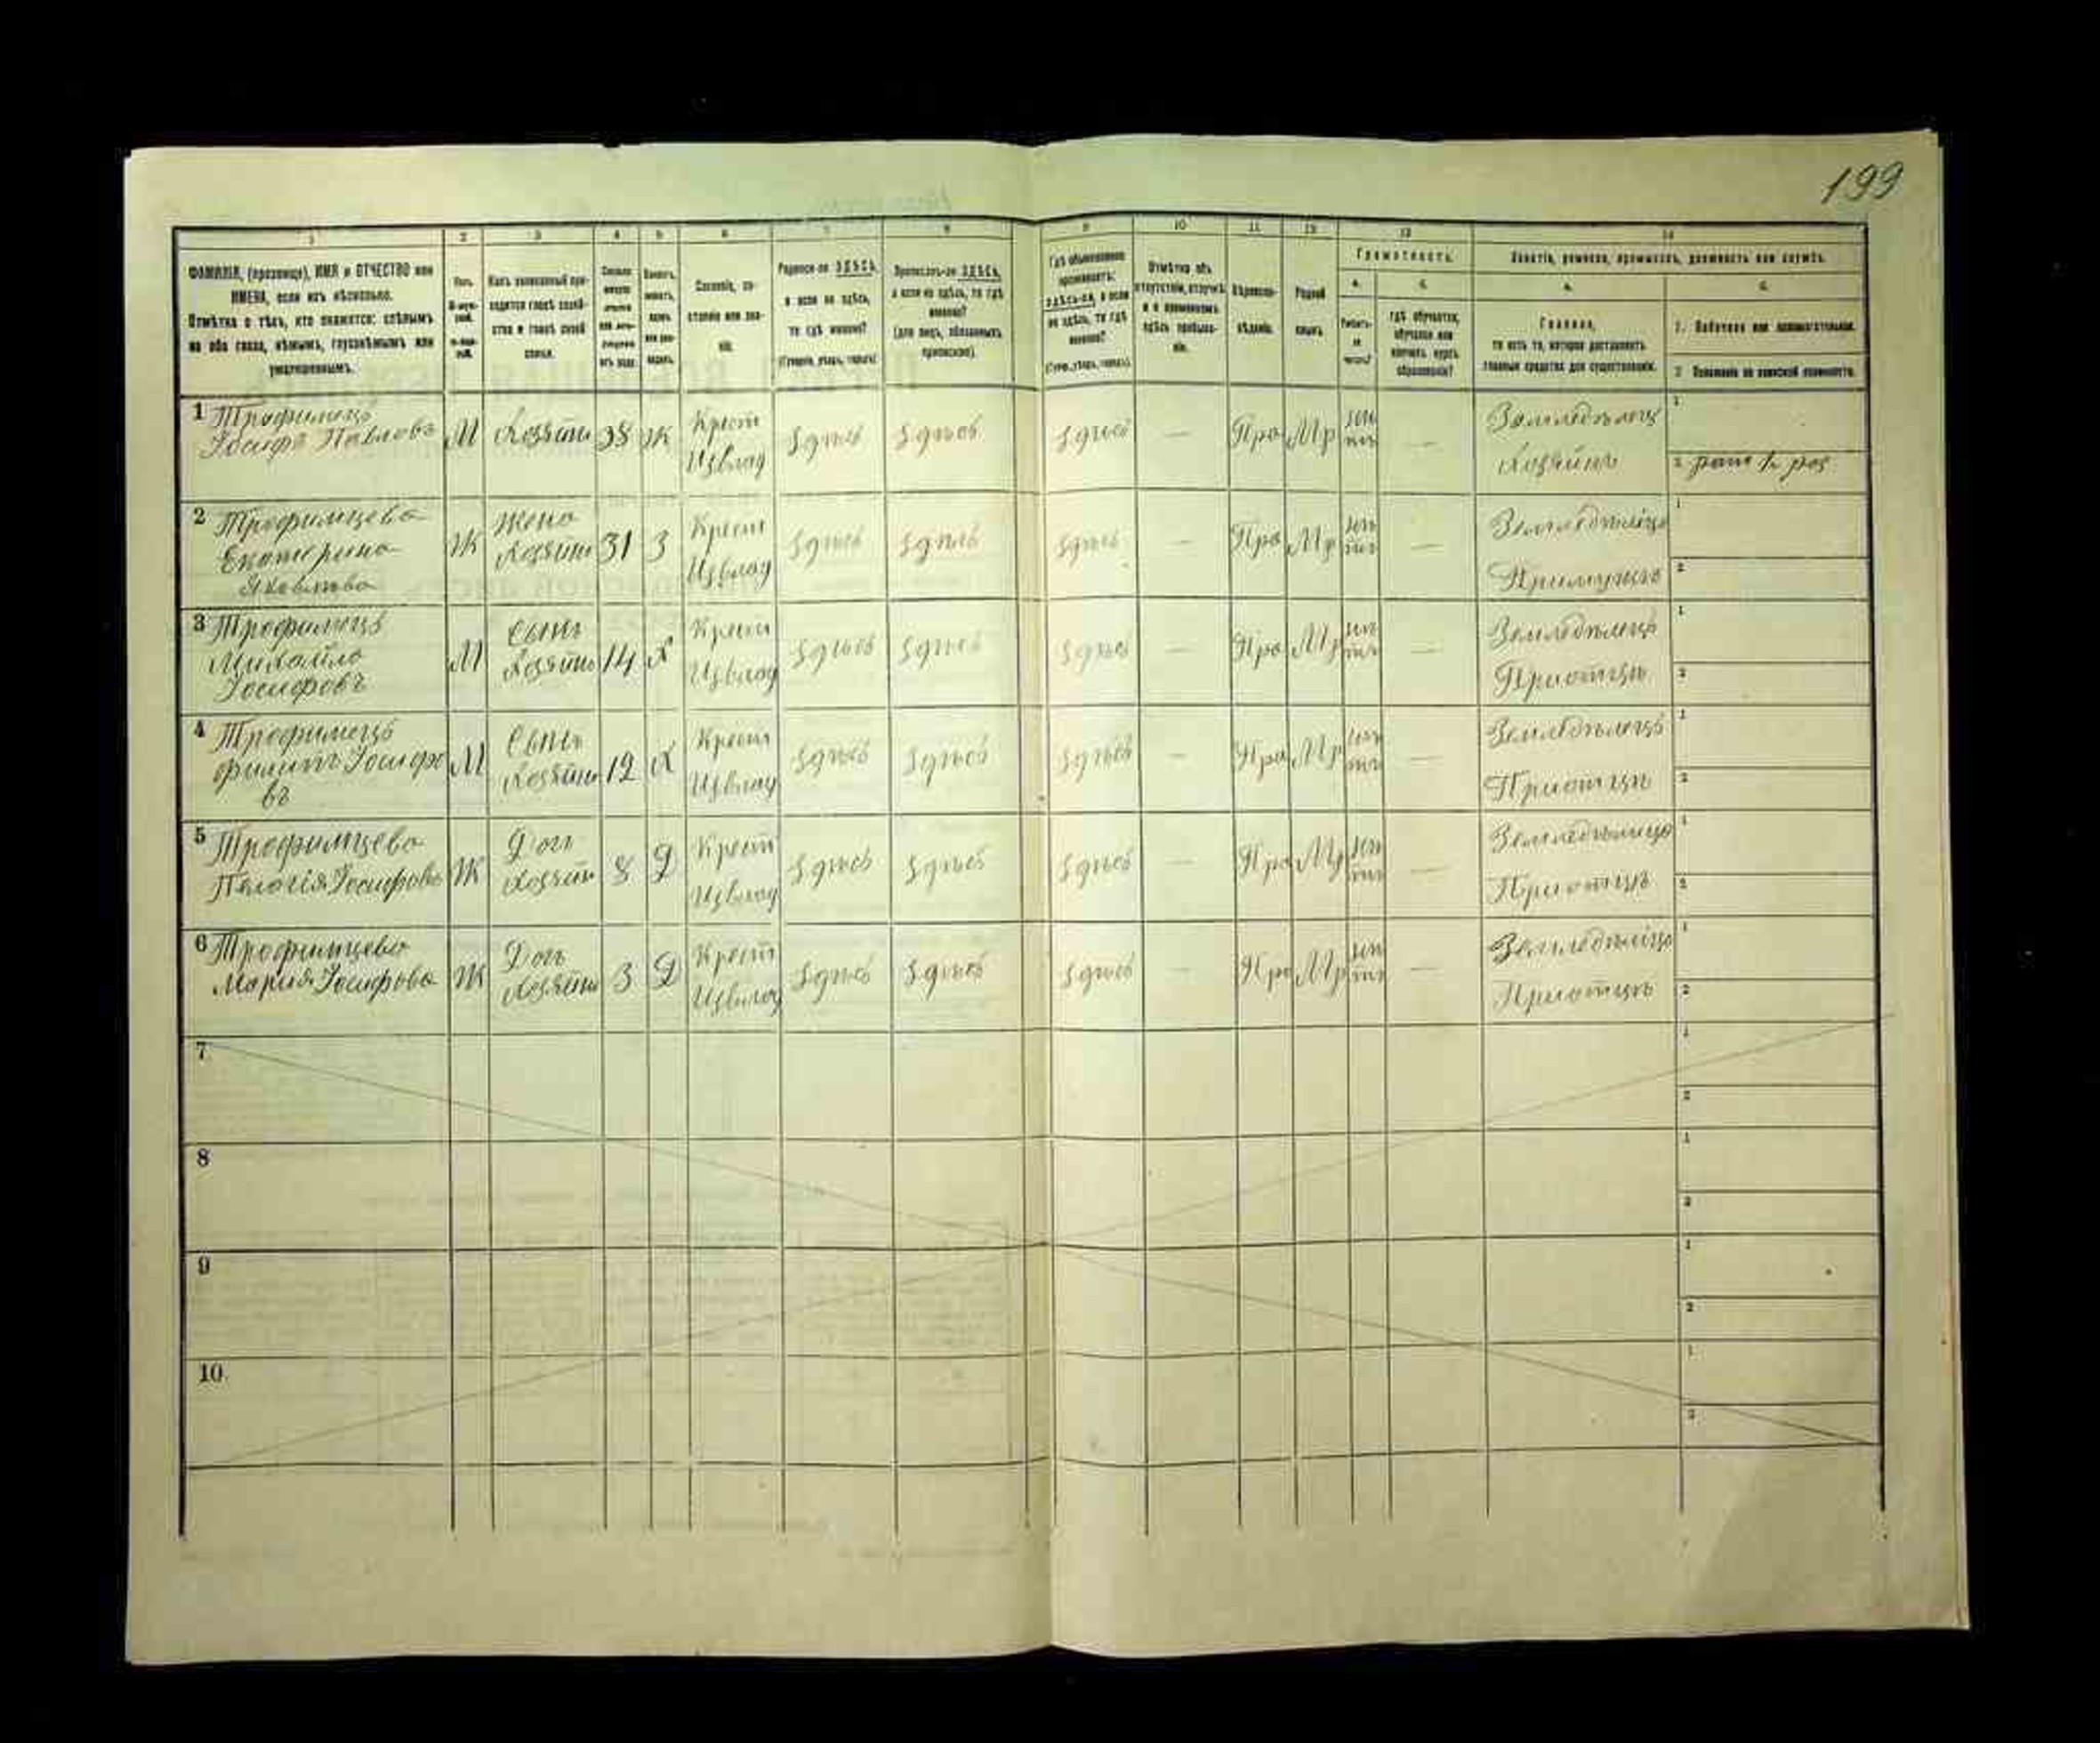 199
1 2 3 4 5 6 7 8 9 10 11 12 13 14
ФАМИЛІЯ, (прозвище), ИМЯ и ОТЧЕСТВО или
ИМЕНА, если ихъ нѣсколько.
Отмѣтка о тѣхъ, кто окажется: слѣпымъ
на оба глаза, нѣмымъ, глухонѣмымъ или
умалишеннымъ.
Полъ.
Какъ записанный при-
ходится главѣ хозяй-
ства и главѣ своей
семьи.
Сословіе, со-
стояніе или зва-
ніе.
Родился-ли ЗДѢСЬ,
а если не здѣсь,
то гдѣ именно?
(Губернія, уѣздъ, городъ)
Приписанъ-ли ЗДѢСЬ,
а если не здѣсь, то гдѣ
именно?
(для лицъ, обязанныхъ
припискою).
Гдѣ обыкновенно
проживаетъ:
ЗДѢСЬ-ЛИ, а если
не здѣсь, то гдѣ
именно?
(Губ., уѣздъ, городъ).
Отмѣтка объ
отсутствіи, отлучкѣ
и о временномъ
здѣсь пребыва-
ніи.
Вѣроиспо-
вѣданіе.
Родной
языкъ.
Грамотность.
а. б.
Умѣетъ-
ли
читать?
гдѣ обучается,
обучался или
кончилъ курсъ
образованія?
Занятіе, ремесло, промыселъ, должность или служба.
а. б.
Главное,
то есть то, которое доставляетъ
главныя средства для существованія.
1. Побочное или вспомогательное.
2. Положеніе по воинской повинности.
1 Трофимецъ
Іосифъ Павловъ
М Хозяинъ 38 Ж
Крест
Изъвлад
Здѣсь Здѣсь Здѣсь — Пра Мр нѣтъ —
Земледѣлецъ
Хозяинъ
1
2
2 Трофимцева
Екатерина
Яковлева
Ж
Жена
Хозяина
31 З
Крест
Изъвлад
Здѣсь Здѣсь Здѣсь — Пра Мр нѣтъ —
Земледѣлица
Примужѣ
1
2
3 Трофимецъ
Михайло
Іосифовъ
М
Сынъ
Хозяина
14 Х
Крест
Изъвлад
Здѣсь Здѣсь Здѣсь — Пра Мр нѣтъ —
Земледѣлецъ
Приотцѣ
1
2
4 Трофимецъ
Филипъ Іосифо
въ
М
Сынъ
Хозяина
12 Х
Крест
Изъвлад
Здѣсь Здѣсь Здѣсь — Пра Мр нѣтъ —
Земледѣлецъ
Приотцѣ
1
2
5 Трофимцева
Пелагія Іосифова
Ж
Доч
Хозяин
8 Д
Крест
Изъвлад
Здѣсь Здѣсь Здѣсь — Пра Мр нѣтъ —
Земледѣлица
Приотцѣ
1
2
6 Трофимцева
Мария Іосифова
Ж
Доч
Хозяина
3 Д
Крест
Изъвлад
Здѣсь Здѣсь Здѣсь — Пра Мр нѣтъ —
Земледѣлица
Приотцѣ
1
2
7
1
2
8
1
2
9
1
2
10.
1
2